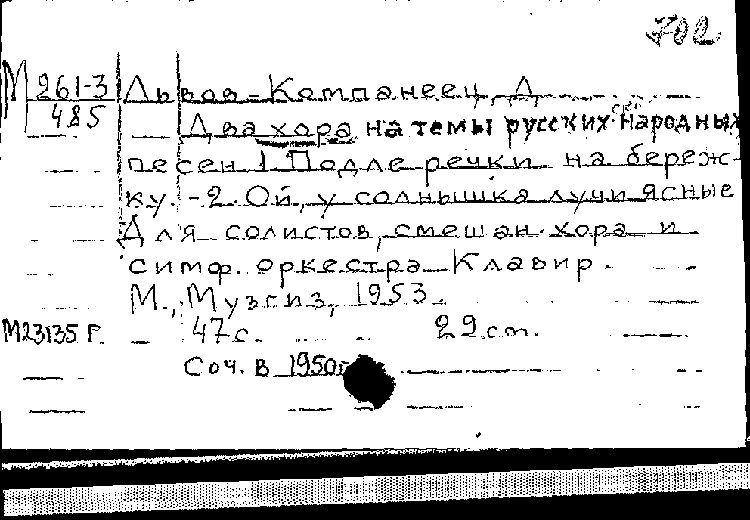 702
М 261-3 Львов-Компанеец, Д.
485 Два хора на темы русских народных
песен 1. Подле речки на береж-
ку. - 2. Ой, у солнышка лучи ясные
Для солистов, смешан. хора и
симф. оркестра Клавир.
М., Музгиз, 1953.
М23135 Г. 47 с. 29 см.
Соч. в 1950г